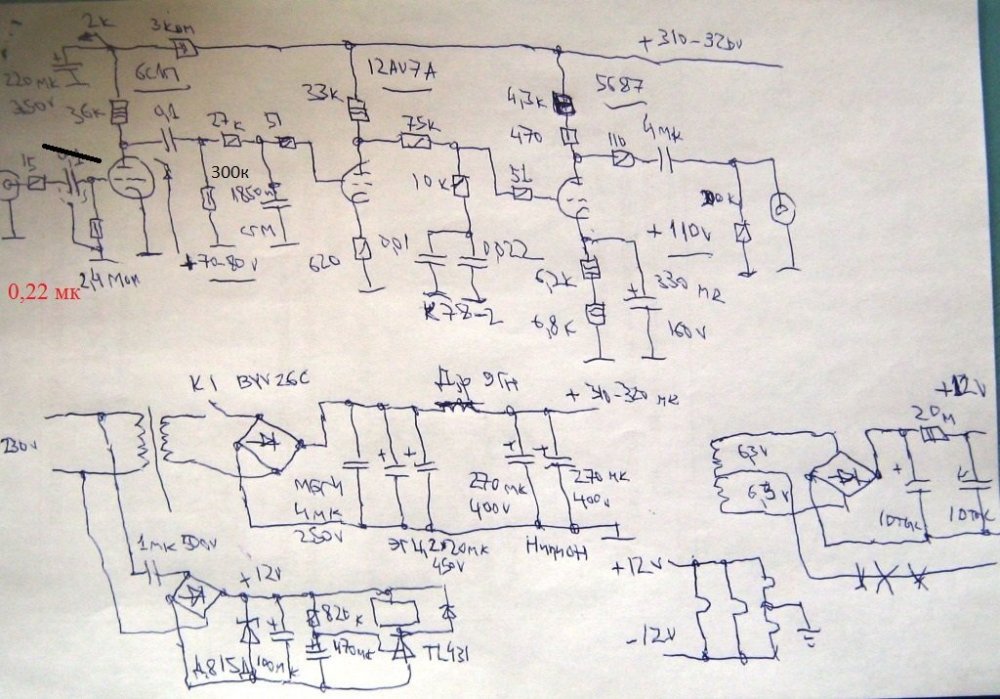 2к
3ком
+310-320v
220мк
350v
6С1П
36к
0,1
27к
51
33к
12AU7A
75к
4,3к
5687
470
110
4мк
15
300к
1850п
сгм
10к
51
+110v
620
0,01
0,022
К78-2
6,2к
6,8к
330мк
160v
+70-80v
2,4Мом
0,22 мк
К1 BYV26C
Др 9Гн
+310-320
230v
МБГЧ
4мк
250v
450v
270мк
400v
270мк
400v
1мк 500v
+12v
Д815Д
100мк
820к
470мк
TL431
6,3v
6,3v
+12v
10тык
10тык
+12v
-12v